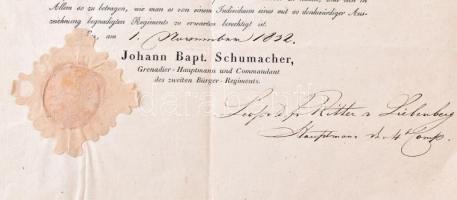 Allen so zu betragen, wie man es von einem Individuum eines mit so denkwürdiger Aus-
zeichnung begnadigten Regiments zu erwarten berechtigt ist.
am 1. November 1832.
Johann Bapt. Schumacher,
Grenadier-Hauptmann und Commandant
des zweiten Bürger-Regiments.
Leopold Ritter v Liebenberg
Hauptmann d. 4t Comp.